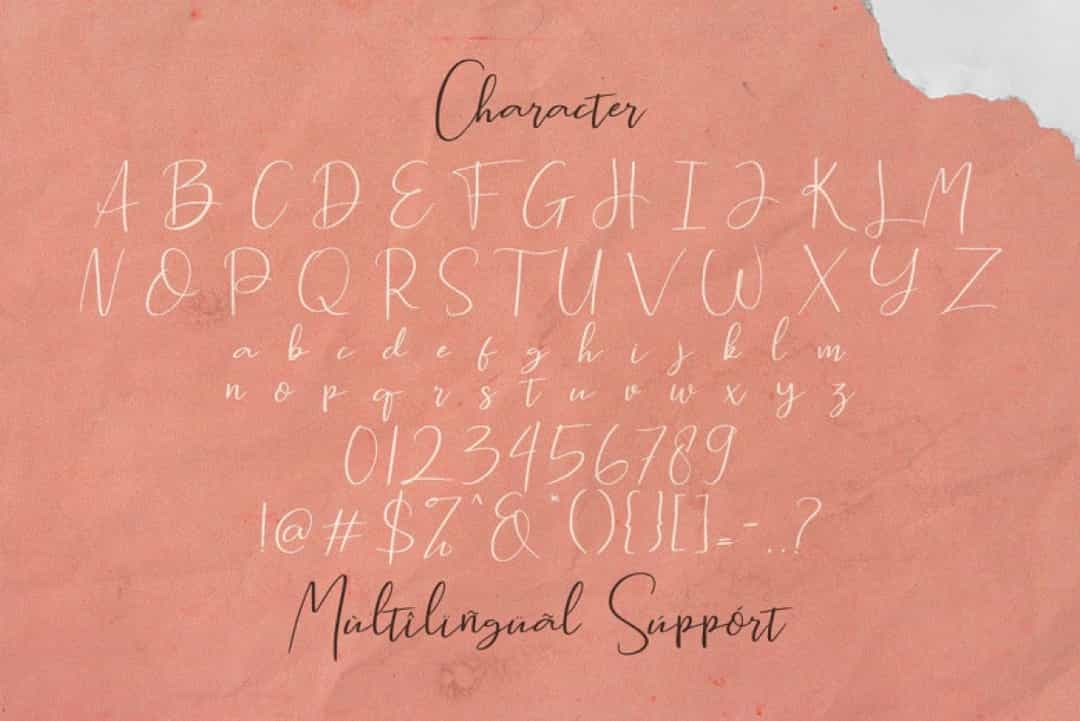 Character
A B C D E F G H I J K L M
N O P Q R S T U V W X Y Z
a b c d e f g h i j k l m
n o p q r s t u v w x y z
0123456789
!@#$%^&*(){}[]=-_..?
Mùltîliñgüãl Súppórt